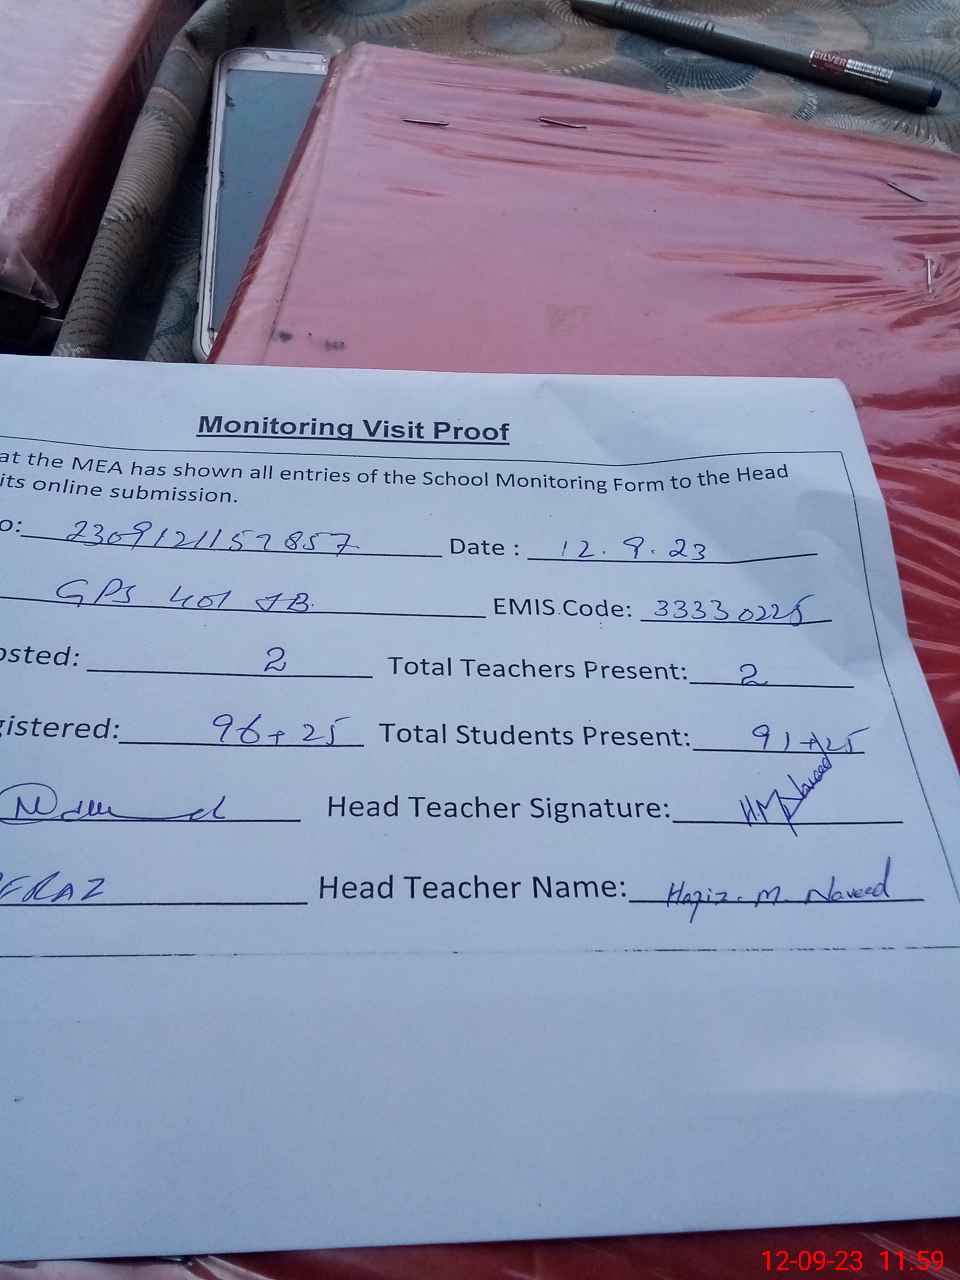 SILVER
Monitoring Visit Proof
at the MEA has shown all entries of the School Monitoring Form to the Head
its online submission.
o: 2309121157857 Date : 12.9.23
GPS 401 JB. EMIS Code: 33330225
osted: 2 Total Teachers Present: 2
gistered: 96+25 Total Students Present: 91+25
Head Teacher Signature: H.M Naveed
FRAZ Head Teacher Name: Hafiz. M. Naveed
12-09-23 11.59